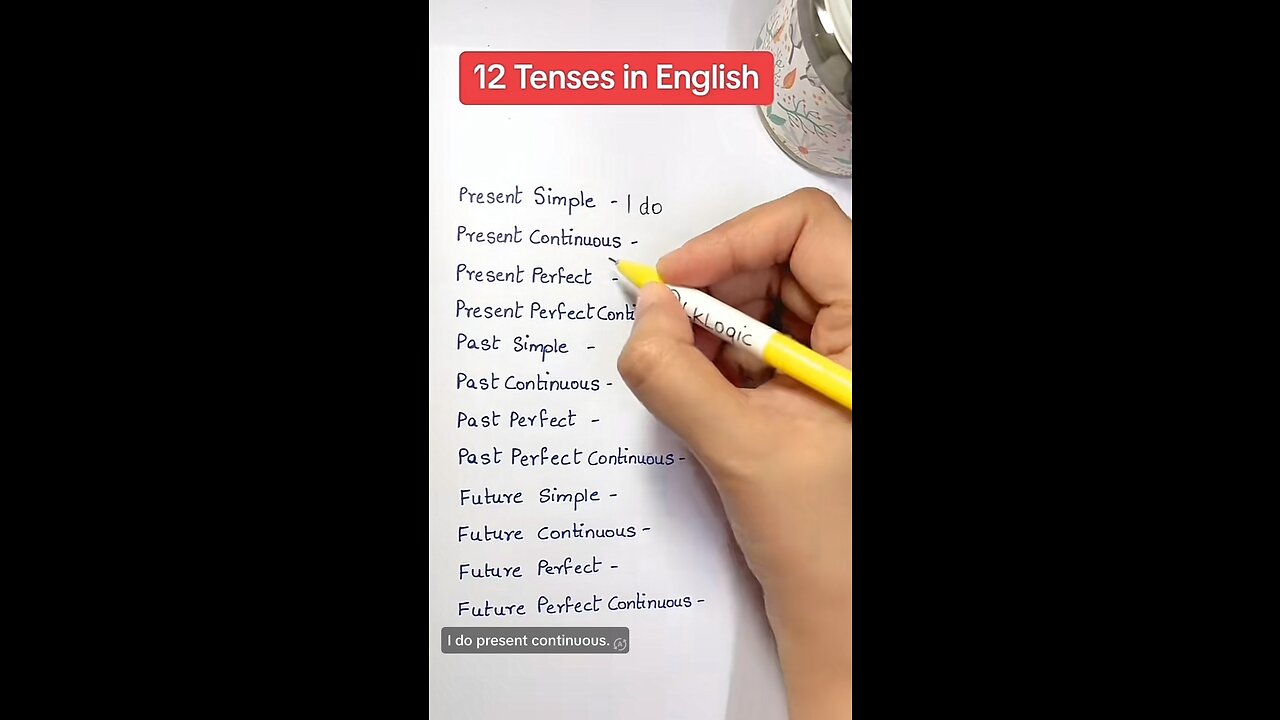 12 Tenses in English
Present Simple - I do
Present Continuous -
Present Perfect -
Present Perfect Conti
Past Simple -
Past Continuous -
Past Perfect -
Past Perfect Continuous -
Future Simple -
Future Continuous -
Future Perfect -
Future Perfect Continuous -
I do present continuous.